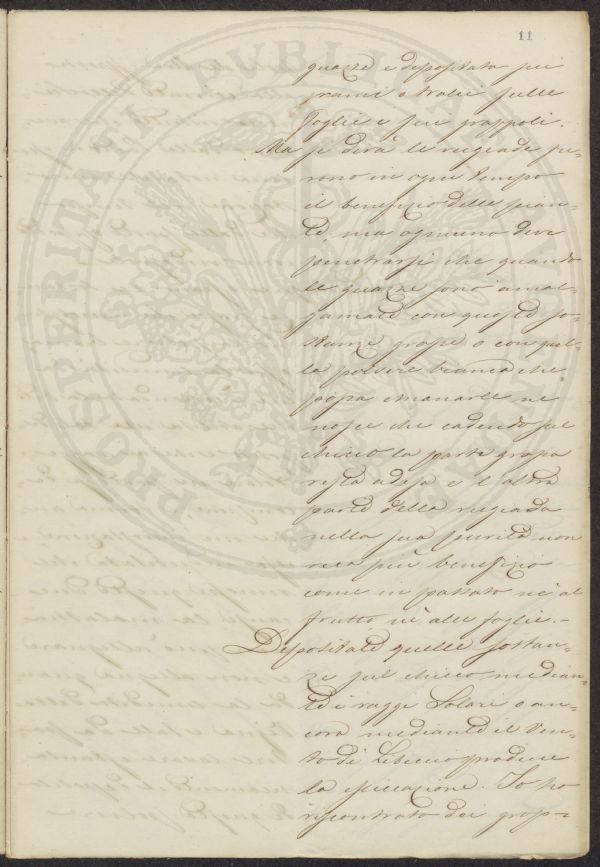 11
quazze e depositata sui
rami o tralci sulle
foglie e sui grappoli.
Ma si dirà le rugiade fu-
rono in ogni tempo
il benefizio delle pian-
te, ma ognuno deve
penetrarsi che quando
le guazze sono amal-
gamate con queste so-
stanze grasse o con quel-
la polvere bianca che
possa emanarle ne
nasce che cadendo sul
chicco la parte grassa
resta adesa e l'altra
parte della rugiada
nella sua purità non
reca più benefizio
come in passato nè al
frutto nè alle foglie. -
Depositate quelle sostan-
ze sul chicco median-
te i raggi Solari o an-
cora mediante il Ven-
to di Libeccio produce
la essiccazione. Io ho
riscontrato dei grap-
PROSPERITATI PVBLICAE